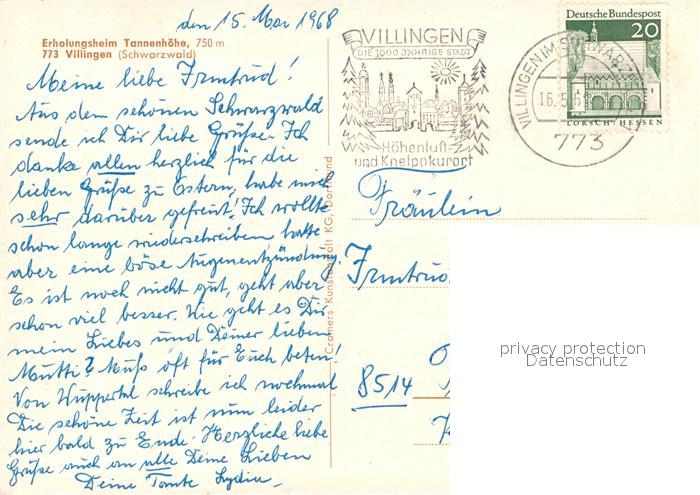 den 15. Mai 1968
Erholungsheim Tannenhöhe, 750 m
773 Villingen (Schwarzwald)
Meine liebe Irmtrud!
Aus dem schönen Schwarzwald
sende ich Dir liebe Grüße. Ich
danke allen herzlich für die
lieben Grüße zu Ostern, habe mich
sehr darüber gefreut! Ich wollte
schon lange wiederschreiben hatte
aber eine böse Augenentzündung.
Es ist noch nicht gut, geht aber
schon viel besser. Wie geht es Dir
mein Liebes und Deiner lieben
Mutti? Muß oft für Euch beten!
Von Wuppertal schreibe ich nochmal
Die schöne Zeit ist nun leider
hier bald zu Ende. Herzliche liebe
Grüße auch an alle Deine Lieben
Deine Tante Lydia
Cramers Kunstanstalt KG, Dortmund
VILLINGEN
DIE 1000 JÄHRIGE STADT
Höhenluft-
und Kneippkurort
VILLINGEN IM SCHWARZW
16.-5.6
773
Deutsche Bundespost
20
LORSCH/HESSEN
Fräulein
Irmtrud
8514
privacy protection
Datenschutz